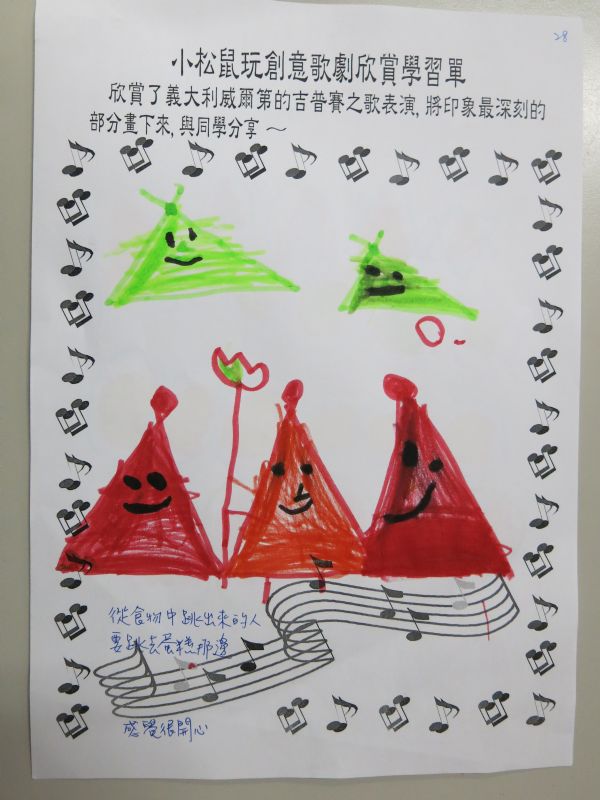 28
小松鼠玩創意歌劇欣賞學習單
欣賞了義大利威爾第的吉普賽之歌表演, 將印象最深刻的
部分畫下來, 與同學分享～
從食物中跳出來的人
要跳去蛋糕那邊
感覺很開心